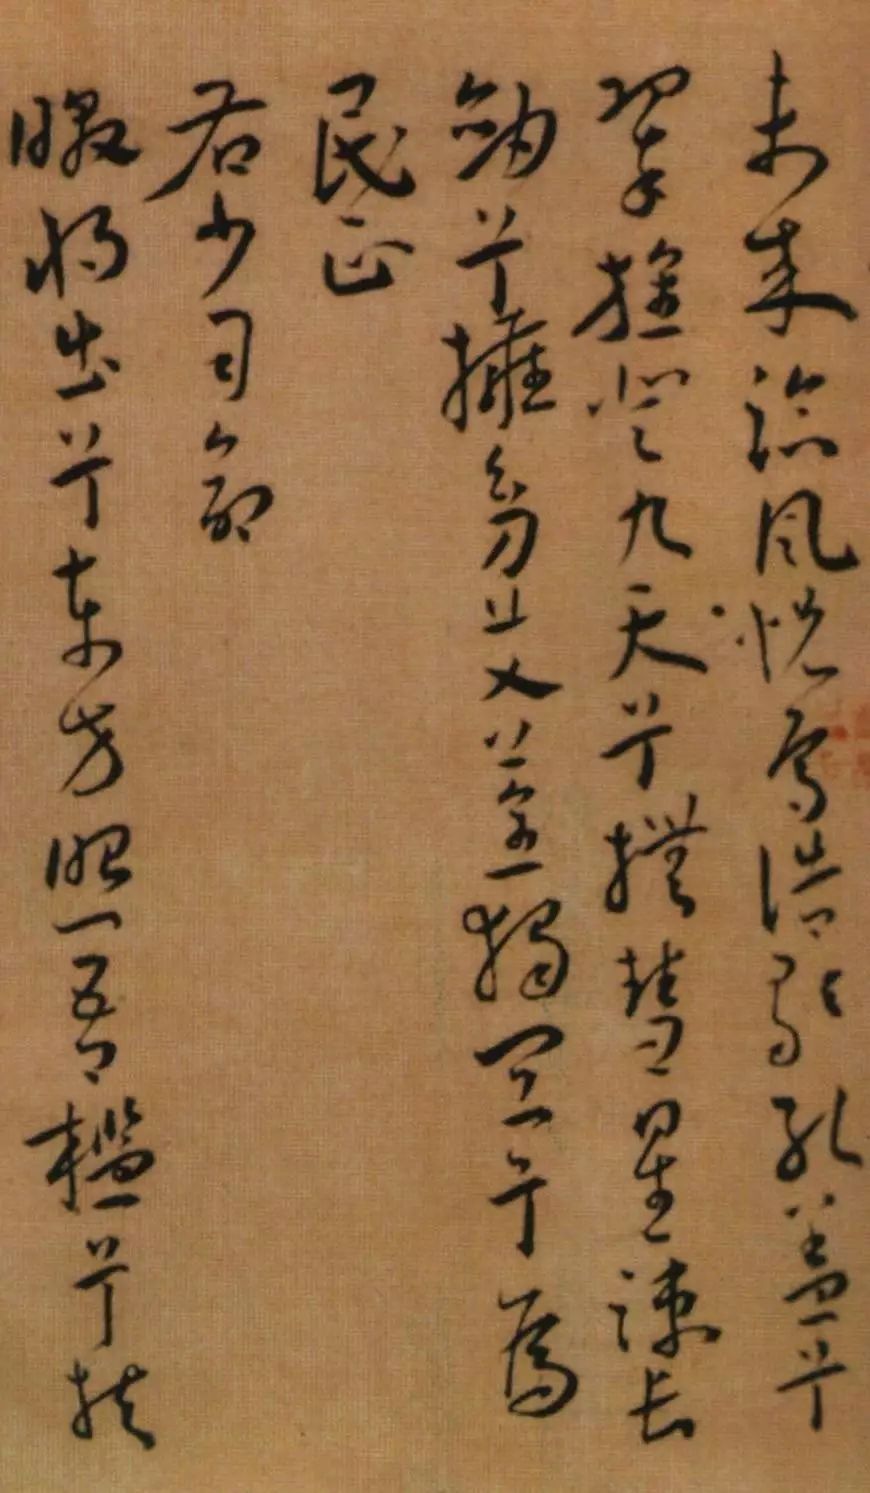 未來臨風怳焉浩歌孔蓋兮
翠旌登九天兮撫彗星竦長
劍兮擁幼艾荃獨宜兮為
民正
右少司命
暾將出兮東方照吾檻兮扶